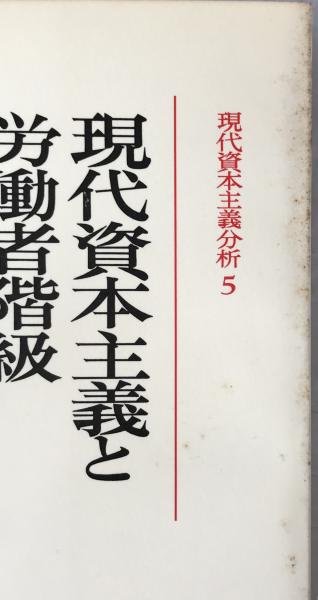 現代資本主義分析5
現代資本主義と
労働者階級